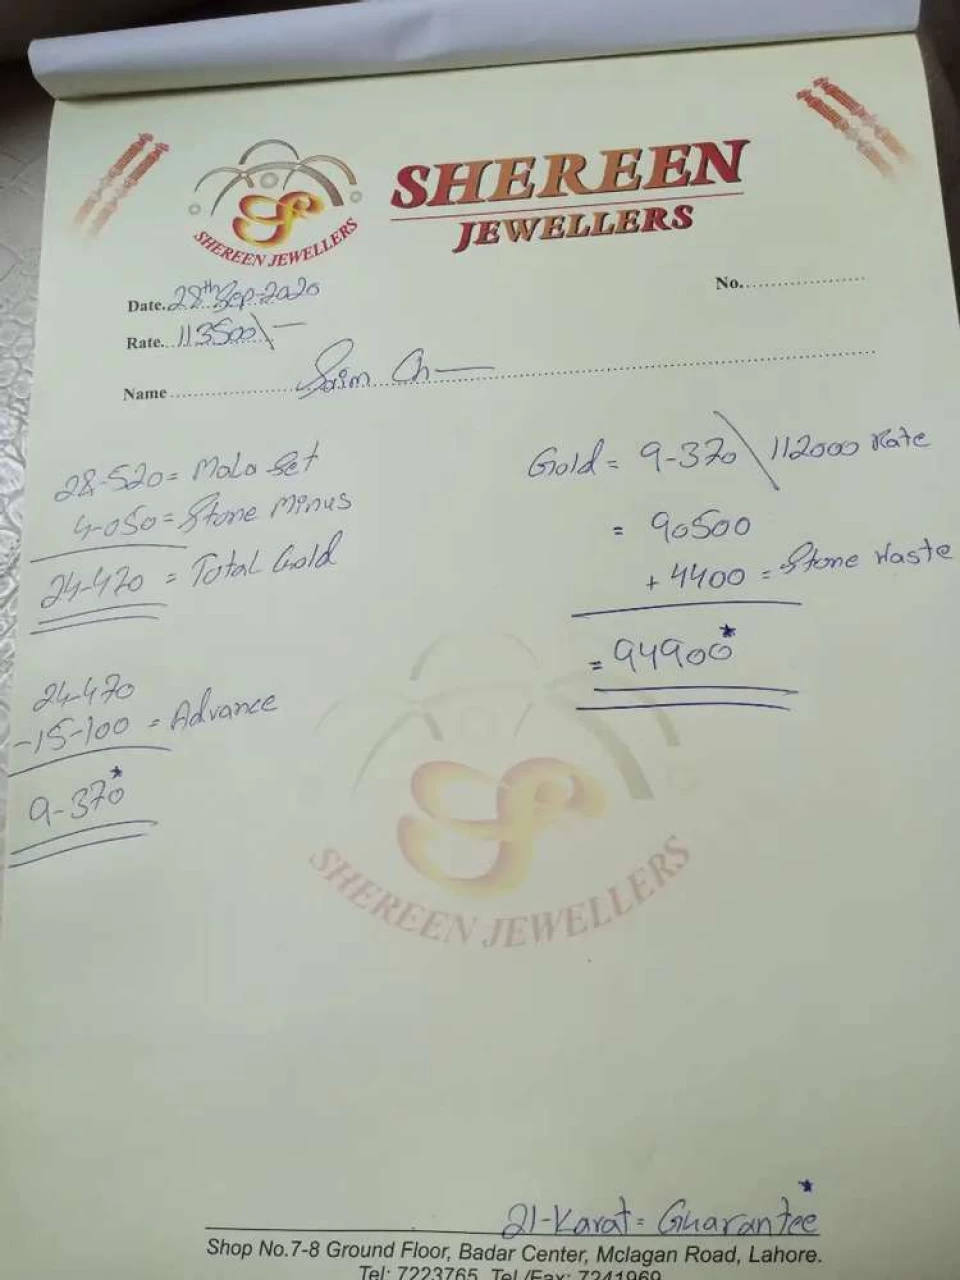 SHEREEN JEWELLERS
SHEREEN
JEWELLERS
No.
Date. 28th Sep-2020
Rate. 113500\-
Name Saim Ch
28-520 = Mala Set
4-050 = Stone Minus
24-470 = Total Gold
24-470
-15-100 = Advance
9-370*
Gold = 9-370 \ 112000 Rate
= 90500
+ 4400 = Stone Waste
= 94900*
SHEREEN JEWELLERS
21-Karat = Guarantee*
Shop No.7-8 Ground Floor, Badar Center, Mclagan Road, Lahore.
Tel: 7223765, Tel/Fax: 7241969